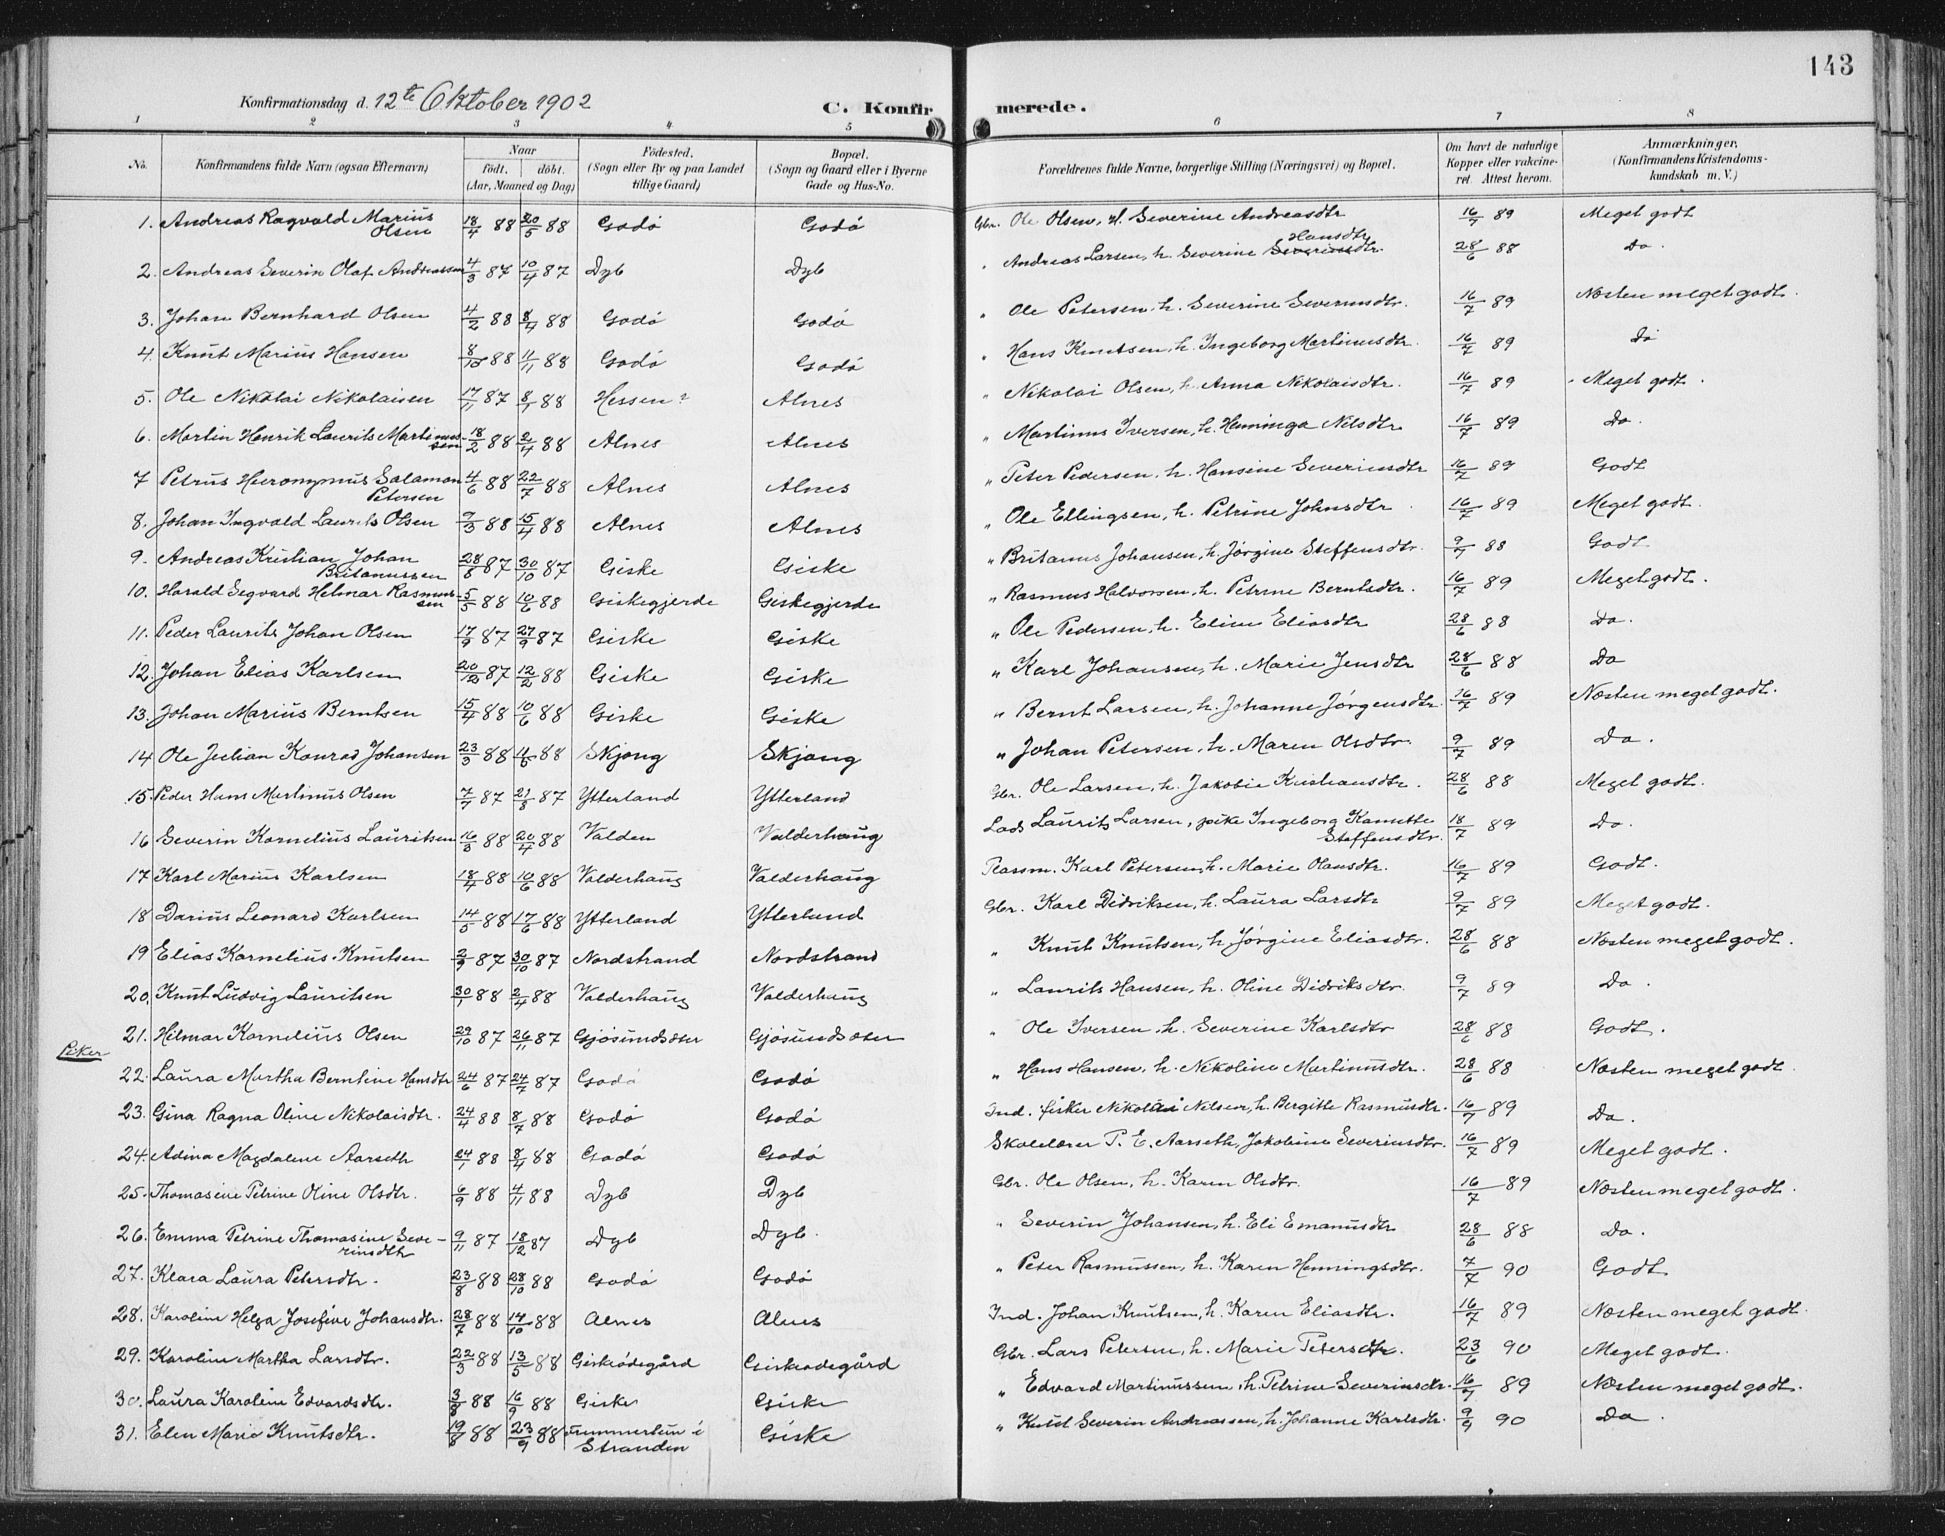 143
Konfirmationsdag d. 12te Oktober 1902 C. Konfirmerede.
1 2 3 4 5 6 7 8
No. Konfirmandens fulde Navn (ogsaa Efternavn) Naar født. døbt. (Aar, Maaned og Dag) Fødested. (Sogn eller By og paa Landet tillige Gaard) Bopæl. (Sogn og Gaard eller i Byerne Gade og Hus-No. Forældrenes fulde Navne, borgerlige Stilling (Næringsvei) og Bopæl. Om havt de naturlige Kopper eller vakcineret. Attest herom. Anmærkninger. (Konfirmandens Kristendomskundskab m. V.)
1. Andreas Ragvald Marius Olsen 18/4 88 20/5 88 Godø Godø Gbr. Ole Olsen, H. Severine Andreasdtr 16/7 89 Meget godt
2. Andreas Severin Olaf Andreassen 4/3 87 10/4 87 Dyb Dyb " Andreas Larsen, h. Severine Severinsdtr. Hansdtr 28/6 88 Do.
3. Johan Bernhard Olsen 4/2 88 8/4 88 Godø Godø " Ole Petersen, h. Severine Severinsdtr. 16/7 89 Næsten meget godt.
4. Knut Marius Hansen 8/10 88 4/11 88 Godø Godø " Hans Knutsen, h. Ingeborg Martinusdtr. 16/7 89 Do
5. Ole Nikolai Nikolaisen 17/11 87 8/1 88 Hessen? Alnes " Nikolai Olsen, h. Anna Nikolaisdtr. 16/7 89 Meget godt.
6. Martin Henrik Laurits Martinussen 18/2 88 2/4 88 Alnes Alnes " Martinus Iversen, h. Henninga Nilsdtr 16/7 89 Do.
7 Petrus Hieronymus Salamon Petersen 4/6 88 22/7 88 Alnes Alnes " Peter Pedersen, h. Hansine Severinsdtr 16/7 89 Godt
8. Johan Ingvald Laurits Olsen 9/3 88 15/4 88 Alnes Alnes " Ole Ellingsen, h. Petrine Johnsdtr 16/7 89 Meget godt.
9. Andreas Kristian Johan Britanussen 28/8 87 30/10 87 Giske Giske " Britanus Johansen, h. Jørgine Steffensdtr. 9/7 88 Godt
10. Harald Segvard Helmar Rasmussen 5/5 88 10/6 88 Giskegjerde Giskegjerde " Rasmus Halvorsen, h. Petrine Berntsdtr. 16/7 89 Meget godt.
11. Peder Laurits Johan Olsen 17/9 87 27/9 87 Giske Giske " Ole Pedersen, h. Eline Eliasdtr 28/6 88 Do.
12. Johan Elias Karlsen 20/12 87 12/2 88 Giske Giske " Karl Johansen, h. Marie Jensdtr 28/6 88 Do
13. Johan Marius Berntsen 15/4 88 10/6 88 Giske Giske " Bernt Larsen, h. Johanne Jørgensdtr. 16/7 89 Næsten meget godt.
14 Ole Julian Konrad Johansen 23/3 88 88 Skjong Skjong " Johan Petersen, h. Maren Olsdtr. 9/7 89 Do.
15. Peder Hans Martinus Olsen 7/7 87 21/8 87 Ytterland Ytterland Gbr. Ole Larsen, h. Jakobie Kristiansdtr. 28/6 88 Meget godt.
16 Severin Kornelius Lauritsen 16/3 88 20/4 88 Valden Valderhaug Lods Laurits Larsen, pike Ingeborg Kanutte Steffensdtr. 18/7 89 Do.
17 Karl Marius Karlsen 18/4 88 10/6 88 Valderhaug Valderhaug Karl Petersen, h. Marie Hansdtr. 16/7 89 Godt.
18 Darius Leonard Karlsen 14/5 88 17/6 88 Ytterland Ytterland Gbr. Karl Didriksen, h. Laura Larsdtr 9/7 89 Meget godt.
19 Elias Kornelius Knutsen 2/9 87 30/10 87 Nordstrand Nordstrand " Knut Knutsen, h. Jørgine Eliasdtr. 28/6 88 Næsten meget godt.
20. Knut Ludvig Lauritsen 30/1 88 2/4 88 Valderhaug Valderhaug " Laurits Hansen, h. Oline Didriksdtr. 9/7 89 Do.
21. Hilmar Kornelius Olsen 29/10 87 26/11 87 Gjøsundsøter Gjøsundsøter " Ole Iversen, h. Severine Karlsdtr 28/6 88 Godt.
Piker
22. Laura Martha Berntine Hansdtr 24/6 87 24/7 87 Godø Godø " Hans Hansen, h. Nikoline Martinusdtr. 28/6 88 Næsten meget godt
23. Gina Ragna Oline Nikolaisdtr. 24/4 88 8/7 88 Godø Godø Ind. fisker Nikolai Nilsen, h. Bergitte Rasmusdtr. 16/7 89 Do.
24. Adina Magdalene Aarseth 24/1 88 8/4 88 Godø Godø Skolelærer P. E. Aarseth, Jakobine Severinsdtr. 16/7 89 Meget godt.
25. Thomasine Petrine Oline Olsdtr. 6/9 88 4/11 88 Dyb Dyb Gbr. Ole Olsen, h. Karen Olsdtr. 16/7 89 Næsten meget godt.
26. Emma Petrine Thomasine Severinsdtr 9/11 87 18/12 87 Dyb Dyb. " Severin Johansen, h. Eli Emanusdtr 28/6 88 Do.
27. Klara Laura Petersdtr. 23/8 88 28/10 88 Godø Godø " Peter Rasmussen, h. Karen Henningsdtr. 7/7 90 Godt
28. Karoline Helga Josefine Johansdtr. 28/7 88 14/10 88 Alnes Alnes Ind. Johan Knutsen, h. Karen Eliasdtr. 16/7 89 Næsten meget godt.
29. Karoline Martha Larsdtr. 22/3 88 13/5 88 Giskeødegård Giskeødegård Gbr. Lars Petersen, h. Marie Petersdtr. 23/6 90 Meget godt.
30. Laura Karoline Edvardsdtr. 3/8 88 16/9 88 Giske Giske " Edvard Martinussen, h. Petrine Severinsdtr. 16/7 89 Næsten meget godt.
31. Elen Marie Knutsdtr. 19/8 88 23/9 88 i Stranden Giske " Knut Severin Andreassen, h. Johanne Karlsdtr. 9/9 90 Do.